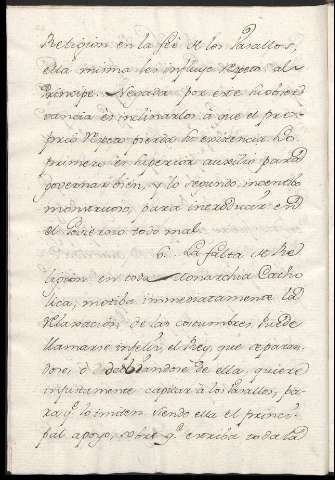 Religion en la feè de los Vasallos,
ella misma les influye respeto al
Principe. Negada por este la obser
vancia es inclinarlos à que el pro
prio respeto pierda la obediencia. Lo
primero es superior auxilio para
governar bien, y lo segundo, incentibo
monstruoso, para introducir en
el Govierno todo mal.
6. La falta de Re
ligion en toda Monarchia Catho
lica, motiba immediatamente la
relaxacion de las costumbres. Puede
llamarse infeliz, el Rey, que separan
dose, ò de ella, quiere
injustamente captar à los Vasallos, pa
ra qe lo imiten siendo ella el princi
pal apoyo, sobre qe estriba toda la